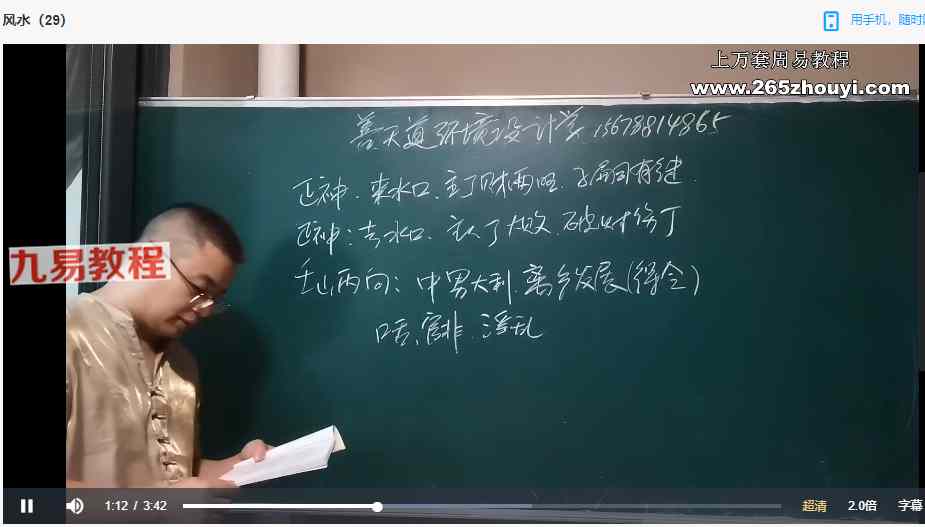 风水（29）
用手机，随时
上万套周易教程
www.265zhouyi.com
善天道环境设计学 15678814865
正神．来水口．主丁财两旺．子嗣有继．
正神：去水口．主人丁大败．破财伤丁
壬山丙向：中男大利．离乡发展（得令）
口舌、官非．淫乱
九易教程
1:12 / 3:42
超清 2.0倍 字幕